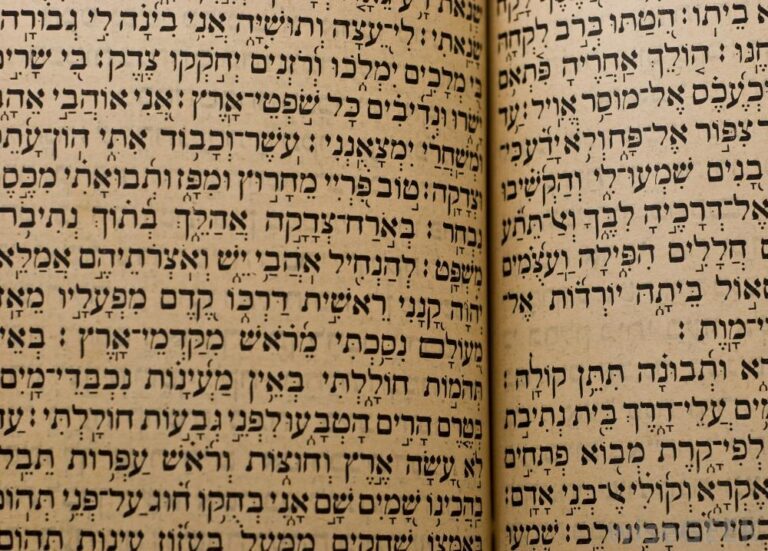 בֵיתוֹ׃ הִטַּתּוּ בְּרֹב לִקְחָהּ
הוֹלֵךְ אַחֲרֶיהָ פִּתְאֹם
אֶל־מוּסַר אֱוִיל׃ עַד
צִפּוֹר אֶל־פָּח וְלֹא יָדַע כִּי־
בָנִים שִׁמְעוּ־לִי וְהַקְשִׁיבוּ
אֶל־דְּרָכֶיהָ לִבֶּךָ וְאַל־תֵּתַע
חֲלָלִים הִפִּילָה וַעֲצֻמִים
שְׁאוֹל בֵּיתָהּ יוֹרְדוֹת אֶל־
מָוֶת׃
וּתְבוּנָה תִּתֵּן קוֹלָהּ׃
עֲלֵי־דָרֶךְ בֵּית נְתִיבוֹת
לְפִי־קָרֶת מְבוֹא פְתָחִים
אֶקְרָא וְקוֹלִי אֶל־בְּנֵי אָדָם׃
הָבִינוּ לֵב׃ שִׁמְעוּ
שָׂנֵאתִי׃ לִי־עֵצָה וְתוּשִׁיָּה אֲנִי בִינָה לִי גְבוּרָה׃
בִּי מְלָכִים יִמְלֹכוּ וְרוֹזְנִים יְחֹקְקוּ צֶדֶק׃ בִּי שָׂרִים
יָשֹׂרוּ וּנְדִיבִים כָּל־שֹׁפְטֵי־אָרֶץ׃ אֲנִי אֹהֲבַי
וּמְשַׁחֲרַי יִמְצָאֻנְנִי׃ עֹשֶׁר־וְכָבוֹד אִתִּי הוֹן עָתֵק
וּצְדָקָה׃ טוֹב פִּרְיִי מֵחָרוּץ וּמִפָּז וּתְבוּאָתִי מִכֶּסֶף
נִבְחָר׃ בְּאֹרַח־צְדָקָה אֲהַלֵּךְ בְּתוֹךְ נְתִיבוֹת
מִשְׁפָּט׃ לְהַנְחִיל אֹהֲבַי יֵשׁ וְאֹצְרֹתֵיהֶם אֲמַלֵּא
יְהוָה קָנָנִי רֵאשִׁית דַּרְכּוֹ קֶדֶם מִפְעָלָיו מֵאָז
מֵעוֹלָם נִסַּכְתִּי מֵרֹאשׁ מִקַּדְמֵי־אָרֶץ׃
תְּהֹמוֹת חוֹלָלְתִּי בְּאֵין מַעְיָנוֹת נִכְבַּדֵּי־מָיִם
בְּטֶרֶם הָרִים הָטְבָּעוּ לִפְנֵי גְבָעוֹת חוֹלָלְתִּי׃ עַד
לֹא עָשָׂה אֶרֶץ וְחוּצוֹת וְרֹאשׁ עַפְרוֹת תֵּבֵל
בַּהֲכִינוֹ שָׁמַיִם שָׁם אָנִי בְּחֻקוֹ חוּג עַל־פְּנֵי תְהוֹם
בְּאַמְּצוֹ שְׁחָקִים מִמָּעַל בַּעֲזוֹז עִינוֹת תְּהוֹם